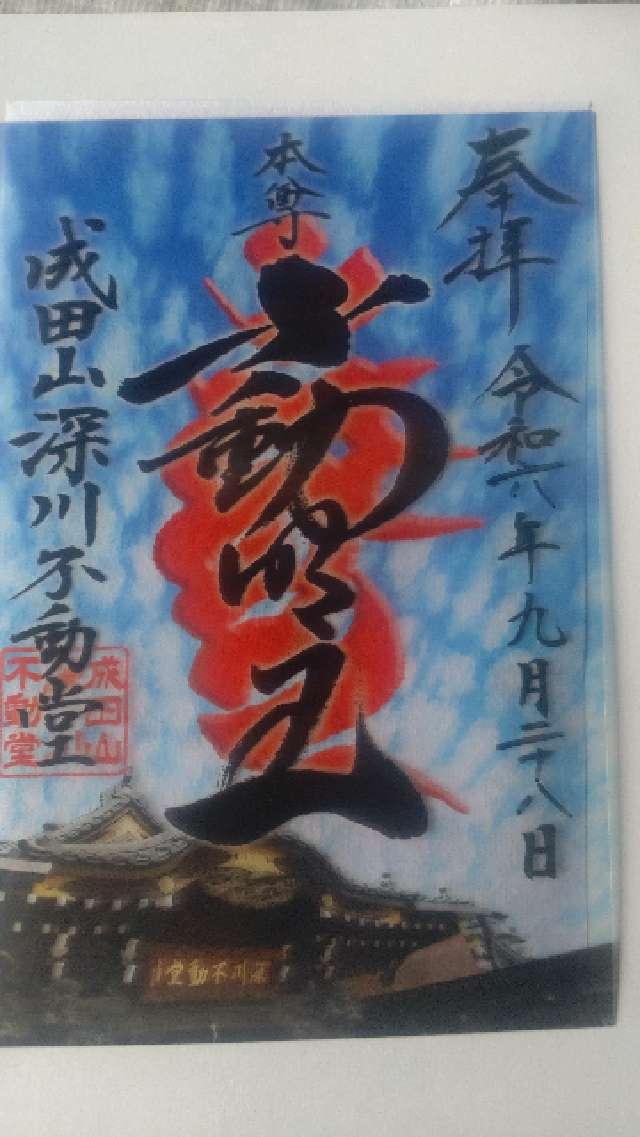 奉拝
令和六年九月二十八日
本尊
不動明王
成田山深川不動堂
成田山
不動堂
深川不動堂